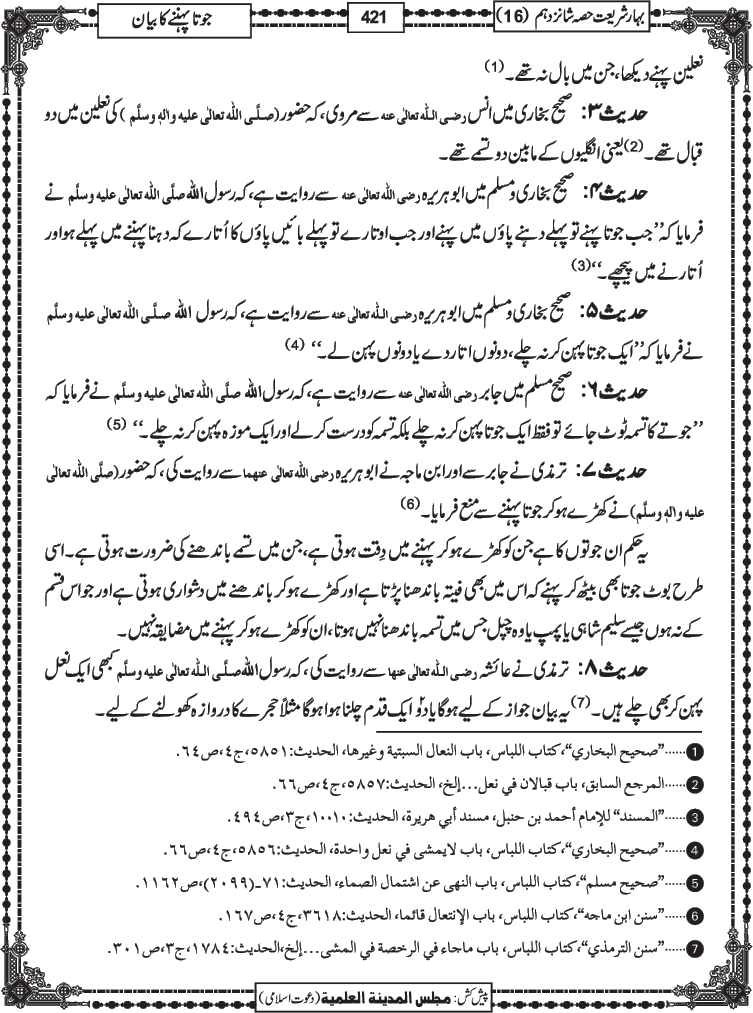 بہار شریعت حصہ شانزدہم (16)
421
جوتا پہننے کا بیان
نعلین پہنے دیکھا، جن میں بال نہ تھے۔ (1)
حدیث ۳: صحیح بخاری میں انس رضی اللہ تعالیٰ عنہ سے مروی، کہ حضور (صلَّی اللہ تعالیٰ علیہ واٰلہٖ وسلَّم) کی نعلین میں دو
قبال تھے۔ (2) یعنی انگلیوں کے مابین دو تسمے تھے۔
حدیث ۴: صحیح بخاری و مسلم میں ابو ہریرہ رضی اللہ تعالیٰ عنہ سے روایت ہے، کہ رسول اللہ صلَّی اللہ تعالیٰ علیہ وسلَّم نے
فرمایا کہ ’’جب جوتا پہنے تو پہلے دہنے پاؤں میں پہنے اور جب اوتارے تو پہلے بائیں پاؤں کا اُتارے کہ دہنا پہننے میں پہلے ہو اور
اُتارنے میں پیچھے۔‘‘ (3)
حدیث ۵: صحیح بخاری و مسلم میں ابو ہریرہ رضی اللہ تعالیٰ عنہ سے روایت ہے، کہ رسول اللہ صلَّی اللہ تعالیٰ علیہ وسلَّم
نے فرمایا کہ ’’ایک جوتا پہن کر نہ چلے، دونوں اتار دے یا دونوں پہن لے۔‘‘ (4)
حدیث ۶: صحیح مسلم میں جابر رضی اللہ تعالیٰ عنہ سے روایت ہے، کہ رسول اللہ صلَّی اللہ تعالیٰ علیہ وسلَّم نے فرمایا کہ
’’جوتے کا تسمہ ٹوٹ جائے تو فقط ایک جوتا پہن کر نہ چلے بلکہ تسمہ کو درست کرلے اور ایک موزہ پہن کر نہ چلے۔‘‘ (5)
حدیث ۷: ترمذی نے جابر سے اور ابن ماجہ نے ابو ہریرہ رضی اللہ تعالیٰ عنہما سے روایت کی، کہ حضور (صلَّی اللہ تعالیٰ
علیہ واٰلہٖ وسلَّم) نے کھڑے ہو کر جوتا پہننے سے منع فرمایا۔ (6)
یہ حکم ان جوتوں کا ہے جن کو کھڑے ہو کر پہننے میں دِقت ہوتی ہے، جن میں تسمے باندھنے کی ضرورت ہوتی ہے۔ اسی
طرح بوٹ جوتا بھی بیٹھ کر پہنے کہ اس میں بھی فیتہ باندھنا پڑتا ہے اور کھڑے ہو کر باندھنے میں دشواری ہوتی ہے اور جو اس قسم
کے نہ ہوں جیسے سلیم شاہی یا پمپ یا وہ چپل جس میں تسمہ باندھنا نہیں ہوتا، ان کو کھڑے ہو کر پہننے میں مضایقہ نہیں۔
حدیث ۸: ترمذی نے عائشہ رضی اللہ تعالیٰ عنہا سے روایت کی، کہ رسول اللہ صلَّی اللہ تعالیٰ علیہ وسلَّم کبھی ایک نعل
پہن کر بھی چلے ہیں۔ (7) یہ بیان جواز کے لیے ہوگا یا دو ایک قدم چلنا ہوا ہوگا مثلاً حجرے کا دروازہ کھولنے کے لیے۔
1 ......”صحيح البخاري“، كتاب اللباس، باب النعال السبتية وغيرها، الحديث: ٥٨٥١، ج٤، ص٦٤.
2 ......المرجع السابق، باب قبالان في نعل...إلخ، الحديث: ٥٨٥٧، ج٤، ص٦٦.
3 ......”المسند“ للإمام أحمد بن حنبل، مسند أبي هريرة، الحديث: ١٠٠١٠، ج٣، ص٤٩٤.
4 ......”صحيح البخاري“، كتاب اللباس، باب لايمشى في نعل واحدة، الحديث: ٥٨٥٦، ج٤، ص٦٦.
5 ......”صحيح مسلم“، كتاب اللباس، باب النهى عن اشتمال الصماء، الحديث: ٧١ـ(٢٠٩٩)، ص١١٦٢.
6 ......”سنن ابن ماجه“، كتاب اللباس، باب الإنتعال قائما، الحديث: ٣٦١٨، ج٤، ص١٦٧.
7 ......”سنن الترمذي“، كتاب اللباس، باب ماجاء في الرخصة في المشى...إلخ، الحديث: ١٧٨٤، ج٣، ص٣٠١.
پیش کش: مجلس المدینۃ العلمیۃ (دعوت اسلامی)